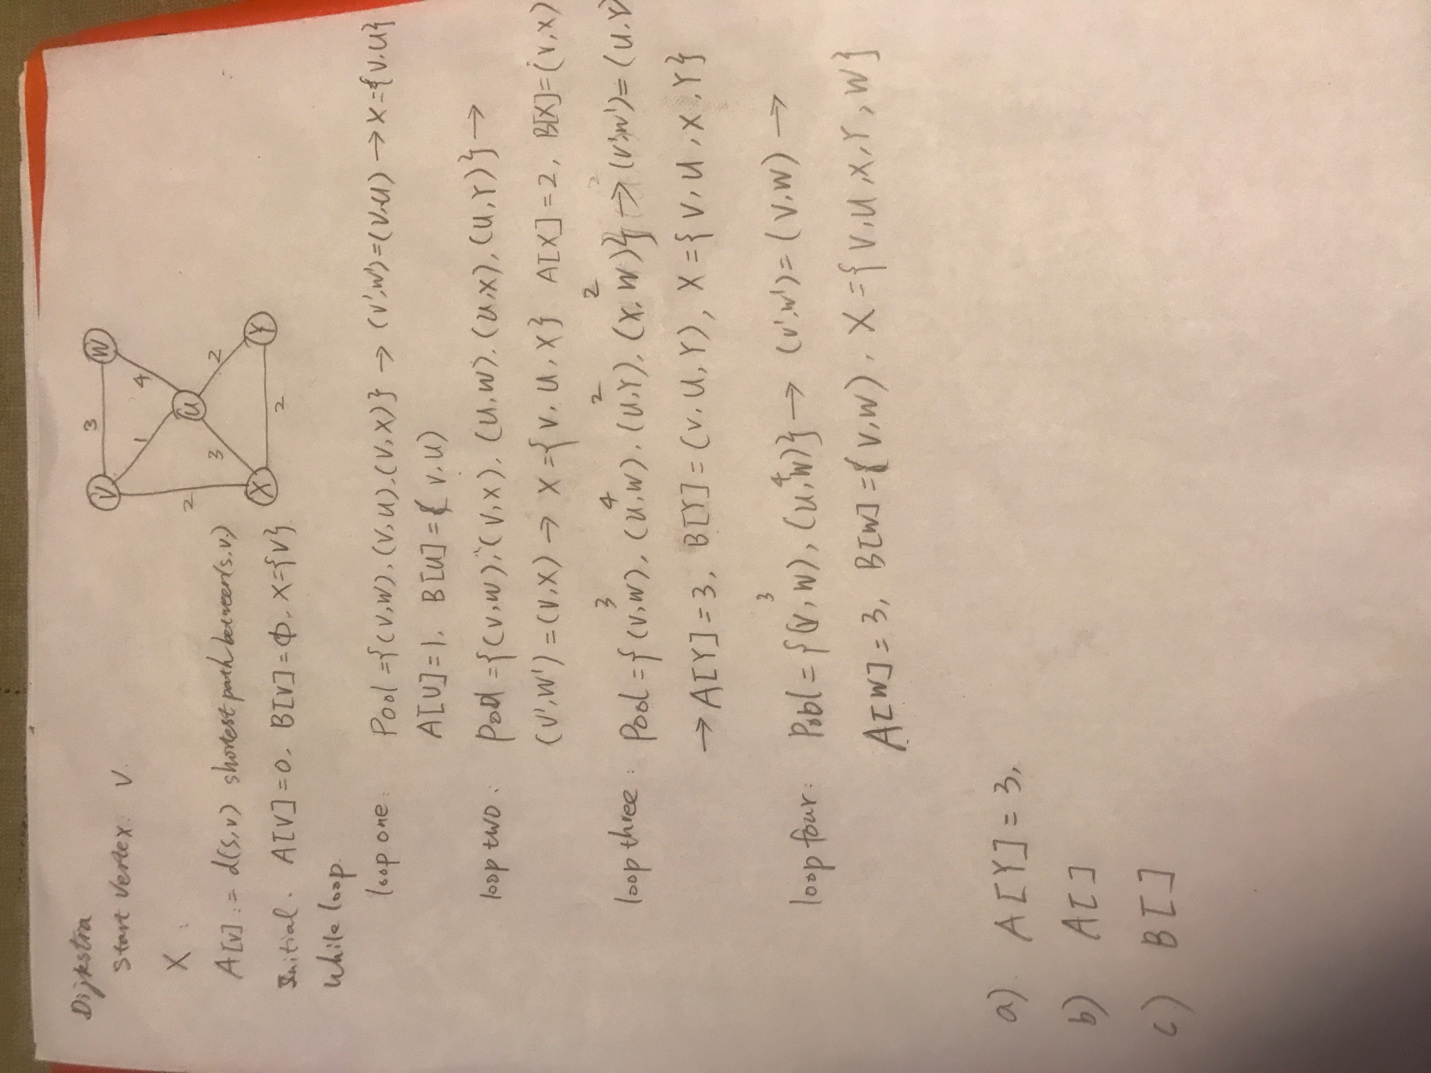 Dijkstra
Start Vertex: V
X:
A[v]:= d(s,v) shortest path between(s,v)
Initial. A[V]=0. B[V]=Φ. X={V}
While loop.
V 3 W
1 4
2 U
3 2
X 2 Y
loop one: Pool={(V,W),(V,U),(V,X)} → (V',W')=(V,U) → X={V,U}
A[U]=1. B[U]=(V,U)
loop two: Pool={(V,W),(V,X),(U,W),(U,X),(U,Y)} →
(V',W')=(V,X) → X={V,U,X} A[X]=2, B[X]=(V,X)
3 4 2 2
loop three: Pool={(V,W),(U,W),(U,Y),(X,W)} → (V',W')=(U,Y)
→ A[Y]=3, B[Y]=(V,U,Y), X={V,U,X,Y}
3 4
loop four: Pool={(V,W),(U,W)} → (V',W')=(V,W) →
A[W]=3, B[W]=(V,W). X={V,U,X,Y,W}
a) A[Y]=3,
b) A[]
c) B[]